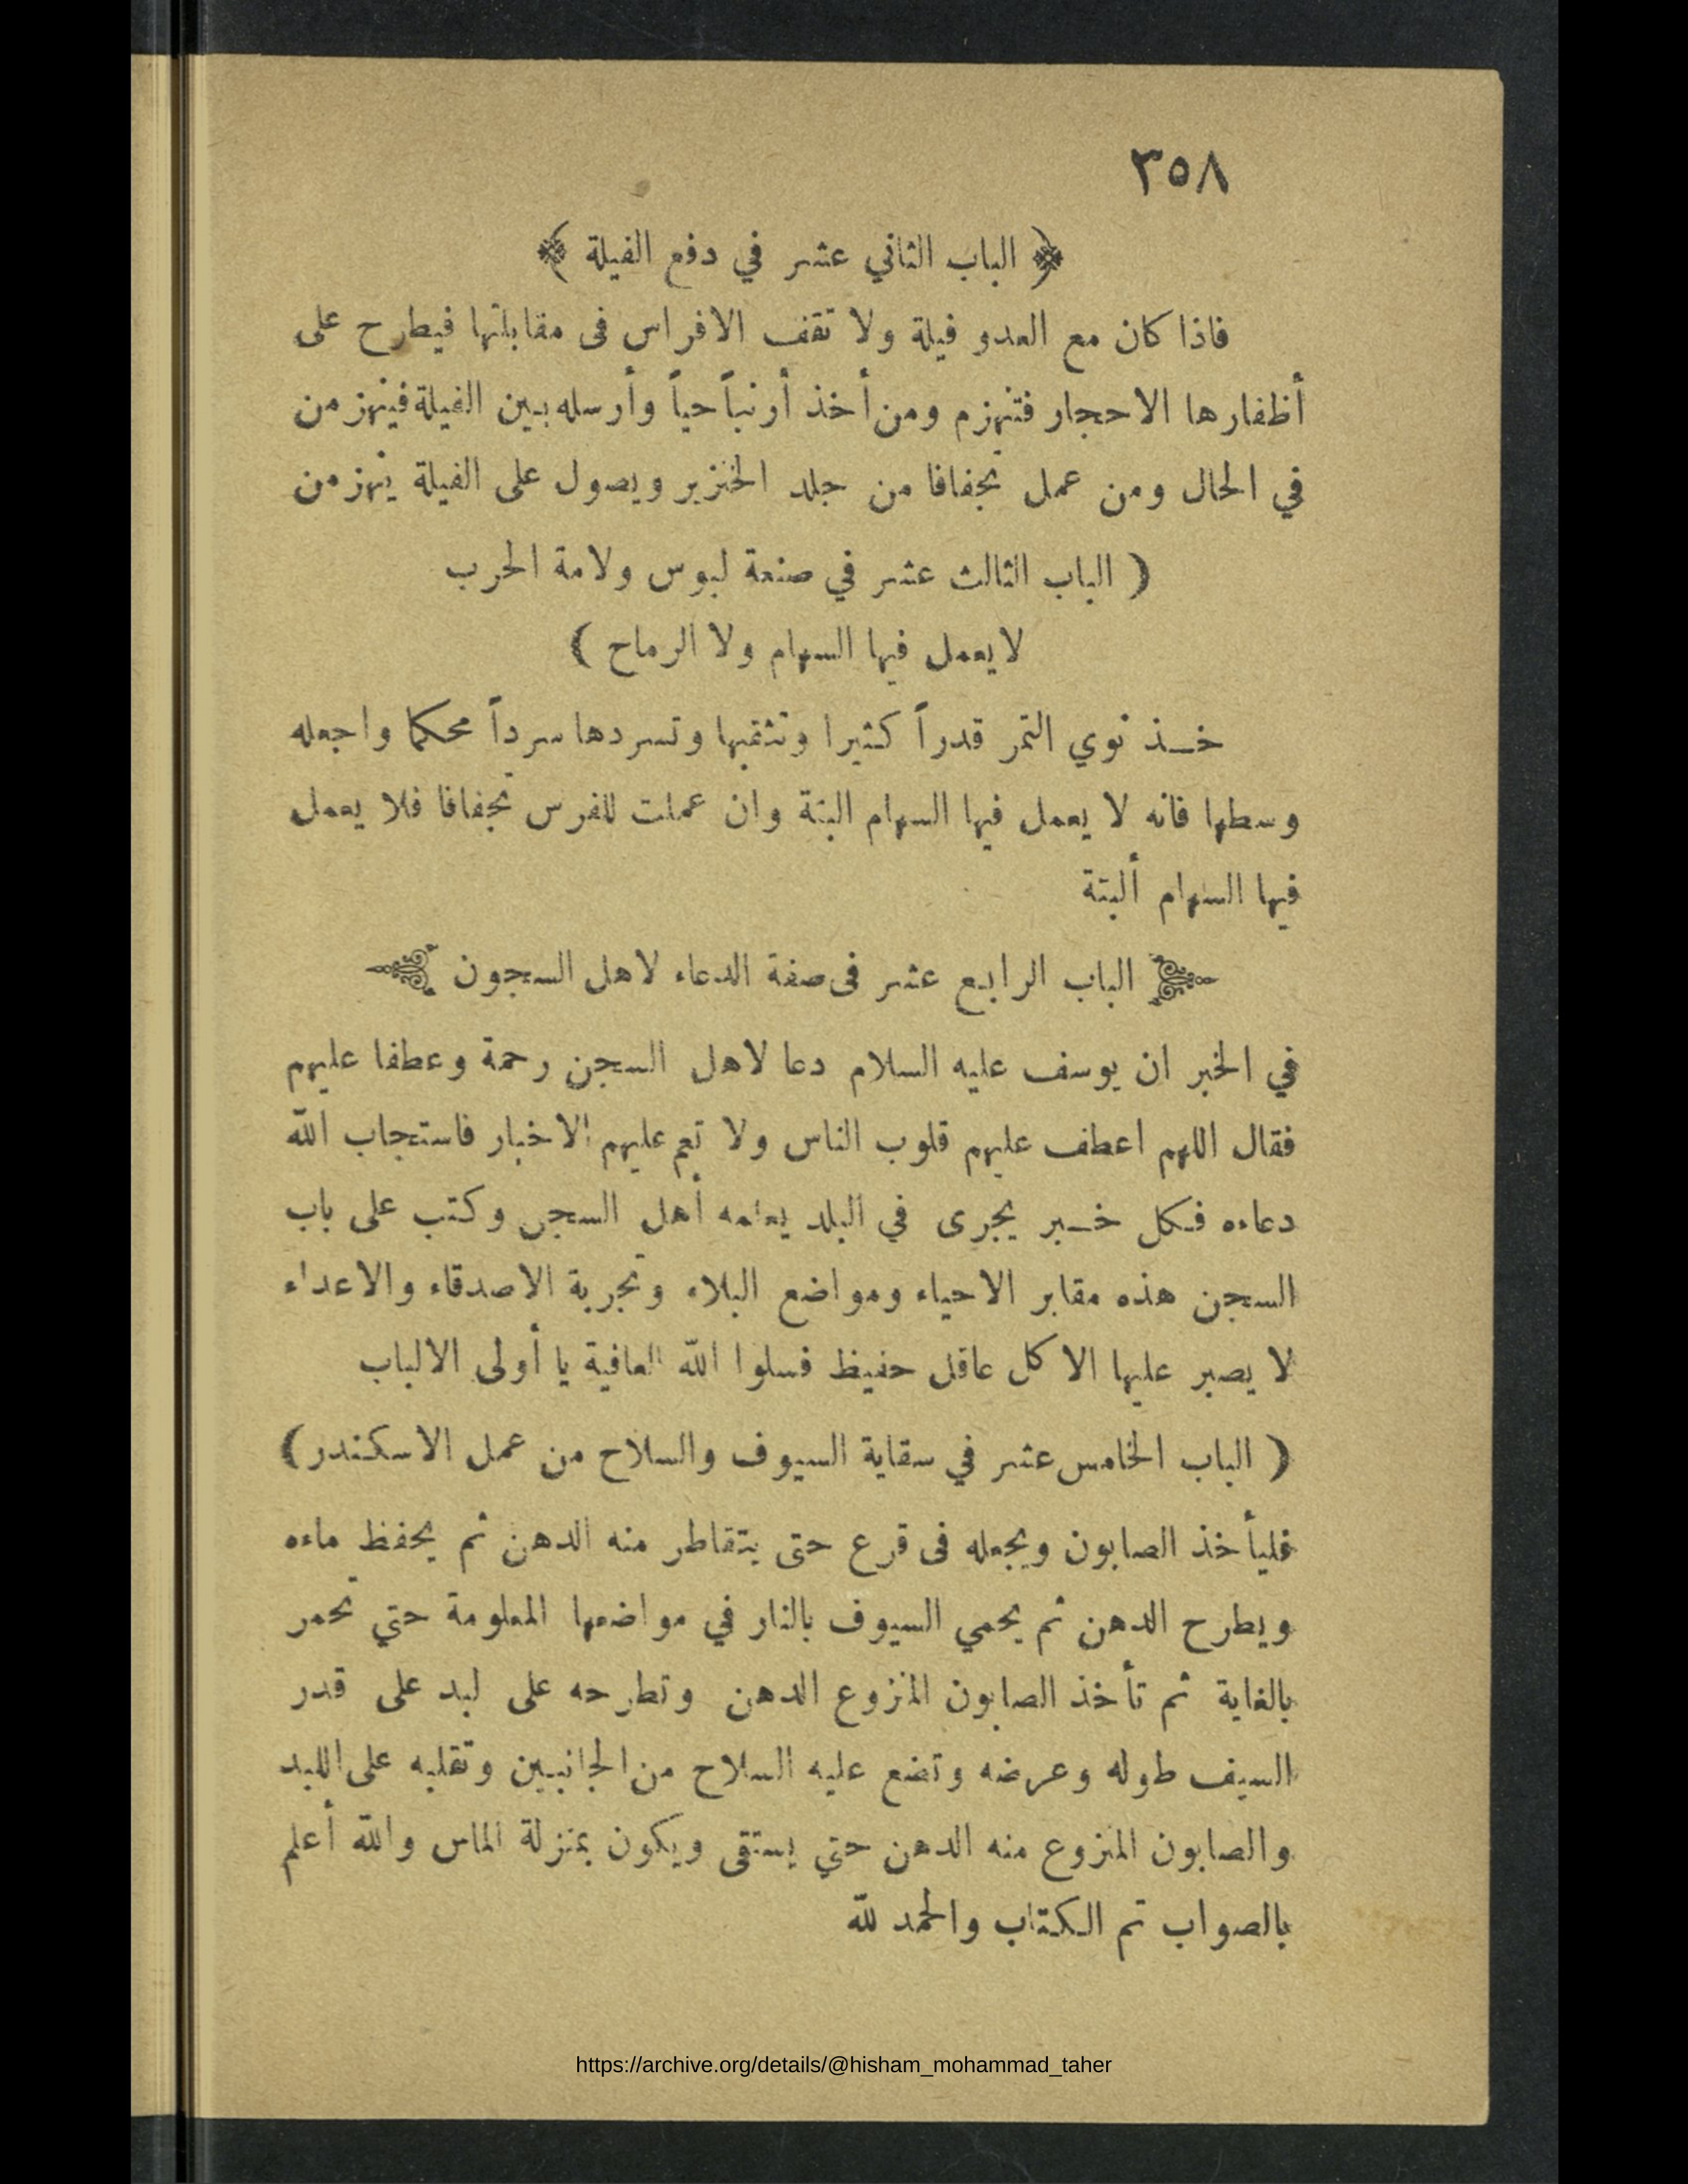 ٣٥٨
﴿ الباب الثاني عشر في دفع الفيلة ﴾
فاذا كان مع العدو فيلة ولا تقف الافراس فى مقابلتها فيطرح على
أظفارها الاحجار فتنهزم ومن أخذ أرنباً حياً وأرسله بين الفيلة فينهزمن
في الحال ومن عمل تجفافا من جلد الخنزير ويصول على الفيلة ينهزمن
( الباب الثالث عشر في صنعة لبوس ولامة الحرب
لا يعمل فيها السهام ولا الرماح )
خذ نوي التمر قدراً كثيرا وتثقبها وتسردها سرداً محكما واجعله
وسطها فانه لا يعمل فيها السهام البتة وان عملت للفرس تجفافا فلا يعمل
فيها السهام ألبتة
الباب الرابع عشر فى صفة الدعاء لاهل السجون
في الخبر ان يوسف عليه السلام دعا لاهل السجن رحمة وعطفا عليهم
فقال اللهم اعطف عليهم قلوب الناس ولا تعم عليهم الاخبار فاستجاب الله
دعاءه فكل خبر يجرى في البلد يعلمه أهل السجن وكتب على باب
السجن هذه مقابر الاحياء ومواضع البلاء وتجربة الاصدقاء والاعداء
لا يصبر عليها الا كل عاقل حفيظ فسلوا الله العافية يا أولى الالباب
( الباب الخامس عشر في سقاية السيوف والسلاح من عمل الاسكندر )
فليأخذ الصابون ويجعله فى قرع حتى يتقاطر منه الدهن ثم يحفظ ماءه
ويطرح الدهن ثم يحمي السيوف بالنار في مواضعها المعلومة حتي تحمر
بالغاية ثم تأخذ الصابون المنزوع الدهن وتطرحه على لبد على قدر
السيف طوله وعرضه وتضع عليه السلاح من الجانبين وتقلبه على اللبد
والصابون المنزوع منه الدهن حتي يستقى ويكون بمنزلة الماس والله أعلم
بالصواب تم الكتاب والحمد لله
https://archive.org/details/@hisham_mohammad_taher